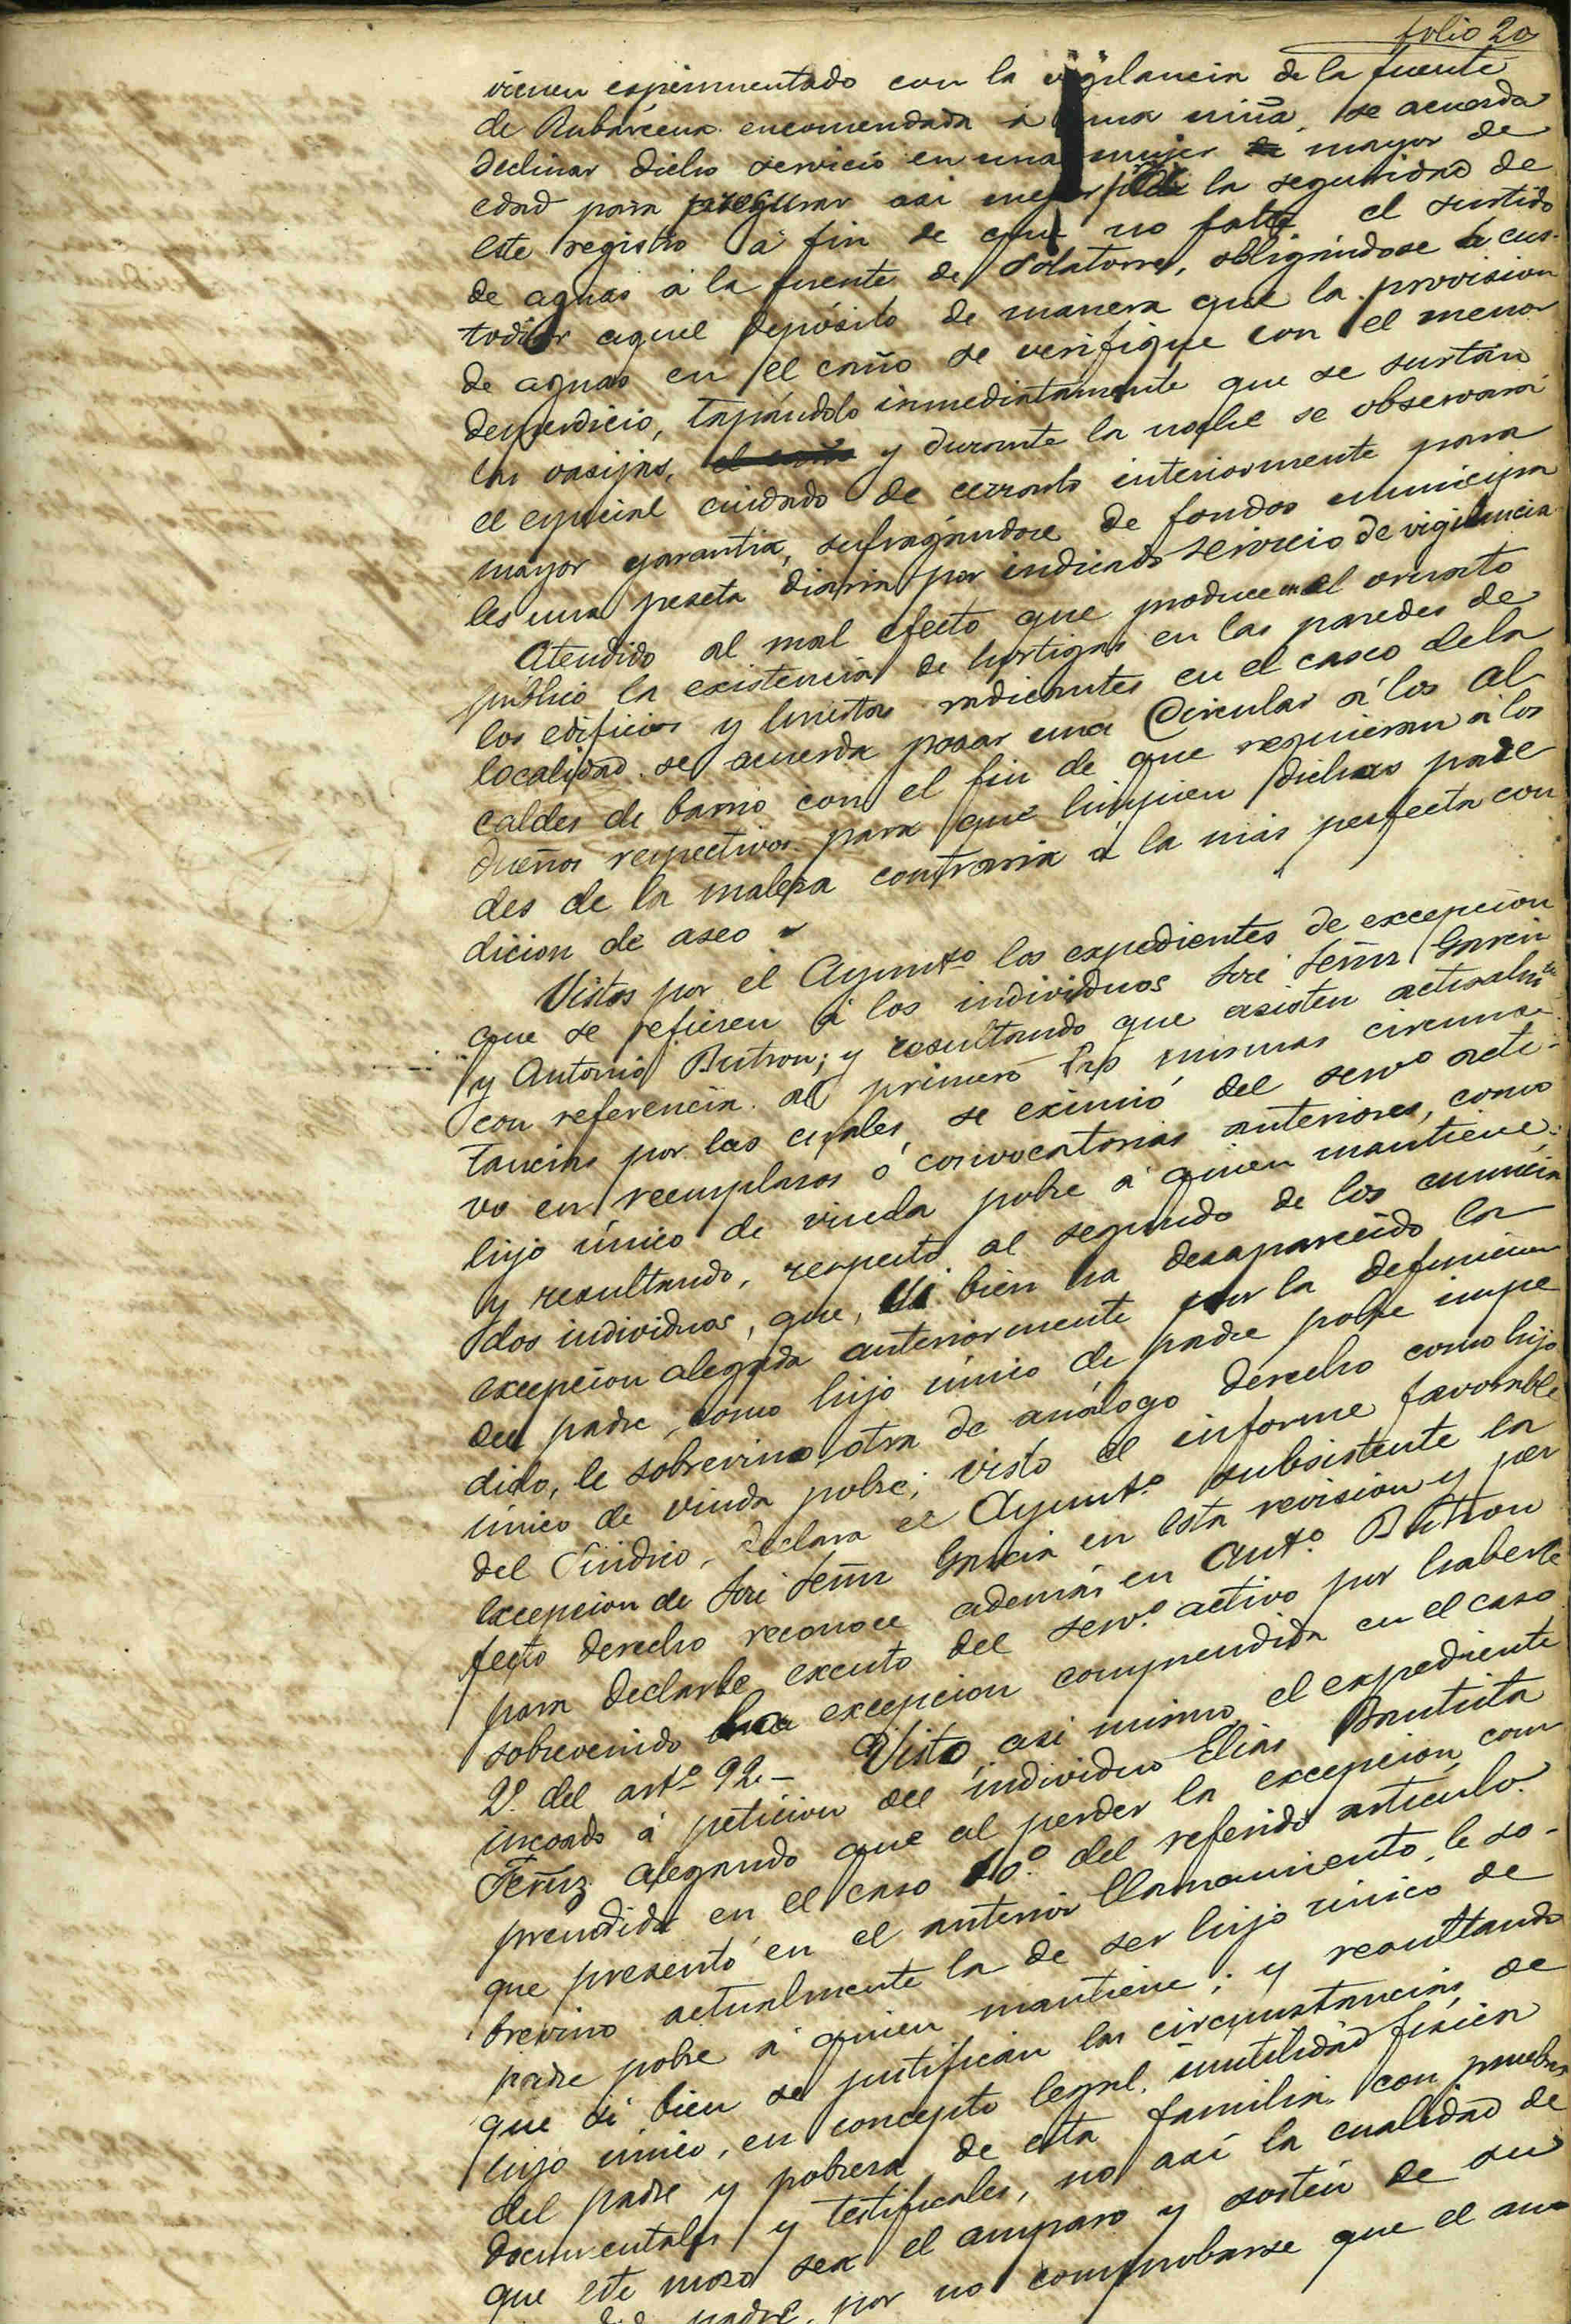 folio 20
vienen esperimentado con la vigilancia de la fuente
de Rubárcena encomendada á una niña, se acuerda
declinar dicho servicio en una mujer mayor de
edad para asegurar asi mejor la seguridad de
este registro á fin de que no falte el surtido
de aguas á la fuente de Solatorre, obligándose á cus-
todiar aquel depósito de manera que la provision
de aguas en el caño se verifique con el menor
desperdicio, tapándolo inmediatamente que se surtan
las vasijas, y durante la noche se observará
el especial cuidado de cerrarlo interiormente para
mayor garantia, sufragándose de fondos municipa
les una peseta diaria por indicado servicio de vigilancia
Atendido al mal efecto que produce en el ornato
público la existencia de hortigas en las paredes de
los edificios y huertas radicantes en el casco de la
localidad se acuerda pasar una Circular á los al
caldes de barrio con el fin de que requieran á los
dueños respectivos para que limpien dichas pare
des de la maleza contraria á la más perfecta con
dicion de aseo
Vistos por el Ayuntº los expedientes de excepcion
que se refieren á los individuos José Fernz Garcia
y Antonio Butron; y resultando que asisten actualmte
con referencia al primero las mismas circuns-
tancias por las cuales se eximió del servº acti-
vo en reemplazos ó convocatorias anteriores, como
hijo único de viuda pobre á quien mantiene;
y resultando, respecto al segundo de los enuncia
dos individuos, que, si bien ha desaparecido la
excepcion alegada anteriormente por la defuncion
del padre, como hijo único de padre pobre impe
dido, le sobrevino otra de análogo derecho como hijo
único de viuda pobre; visto el informe favorable
del Sindico, declara el Ayuntº subsistente la
excepcion de José Fernz Garcia en esta revision y per
fecto derecho reconoce además en Antº Butron
para declarle exento del servº activo por haberle
sobrevenido excepcion comprendida en el caso
2º del artº 92.- Visto, asi mismo, el expediente
incoado á peticion del individuo Elias Bautista
Fernz alegando que al perder la excepcion, com
prendida en el caso 10.º del referido articulo
que presentó en el anterior llamamiento, le so-
brevino actualmente la de ser hijo único de
padre pobre á quien mantiene; y resultando
que si bien se justifican las circunstancias de
hijo único, en concepto legal, inutilidad fisica
del padre y pobreza de esta familia con pruebas
documentales y testificales, no así la cualidad de
que este mozo sea el amparo y sostén de su
padre, por no comprobarse que el au